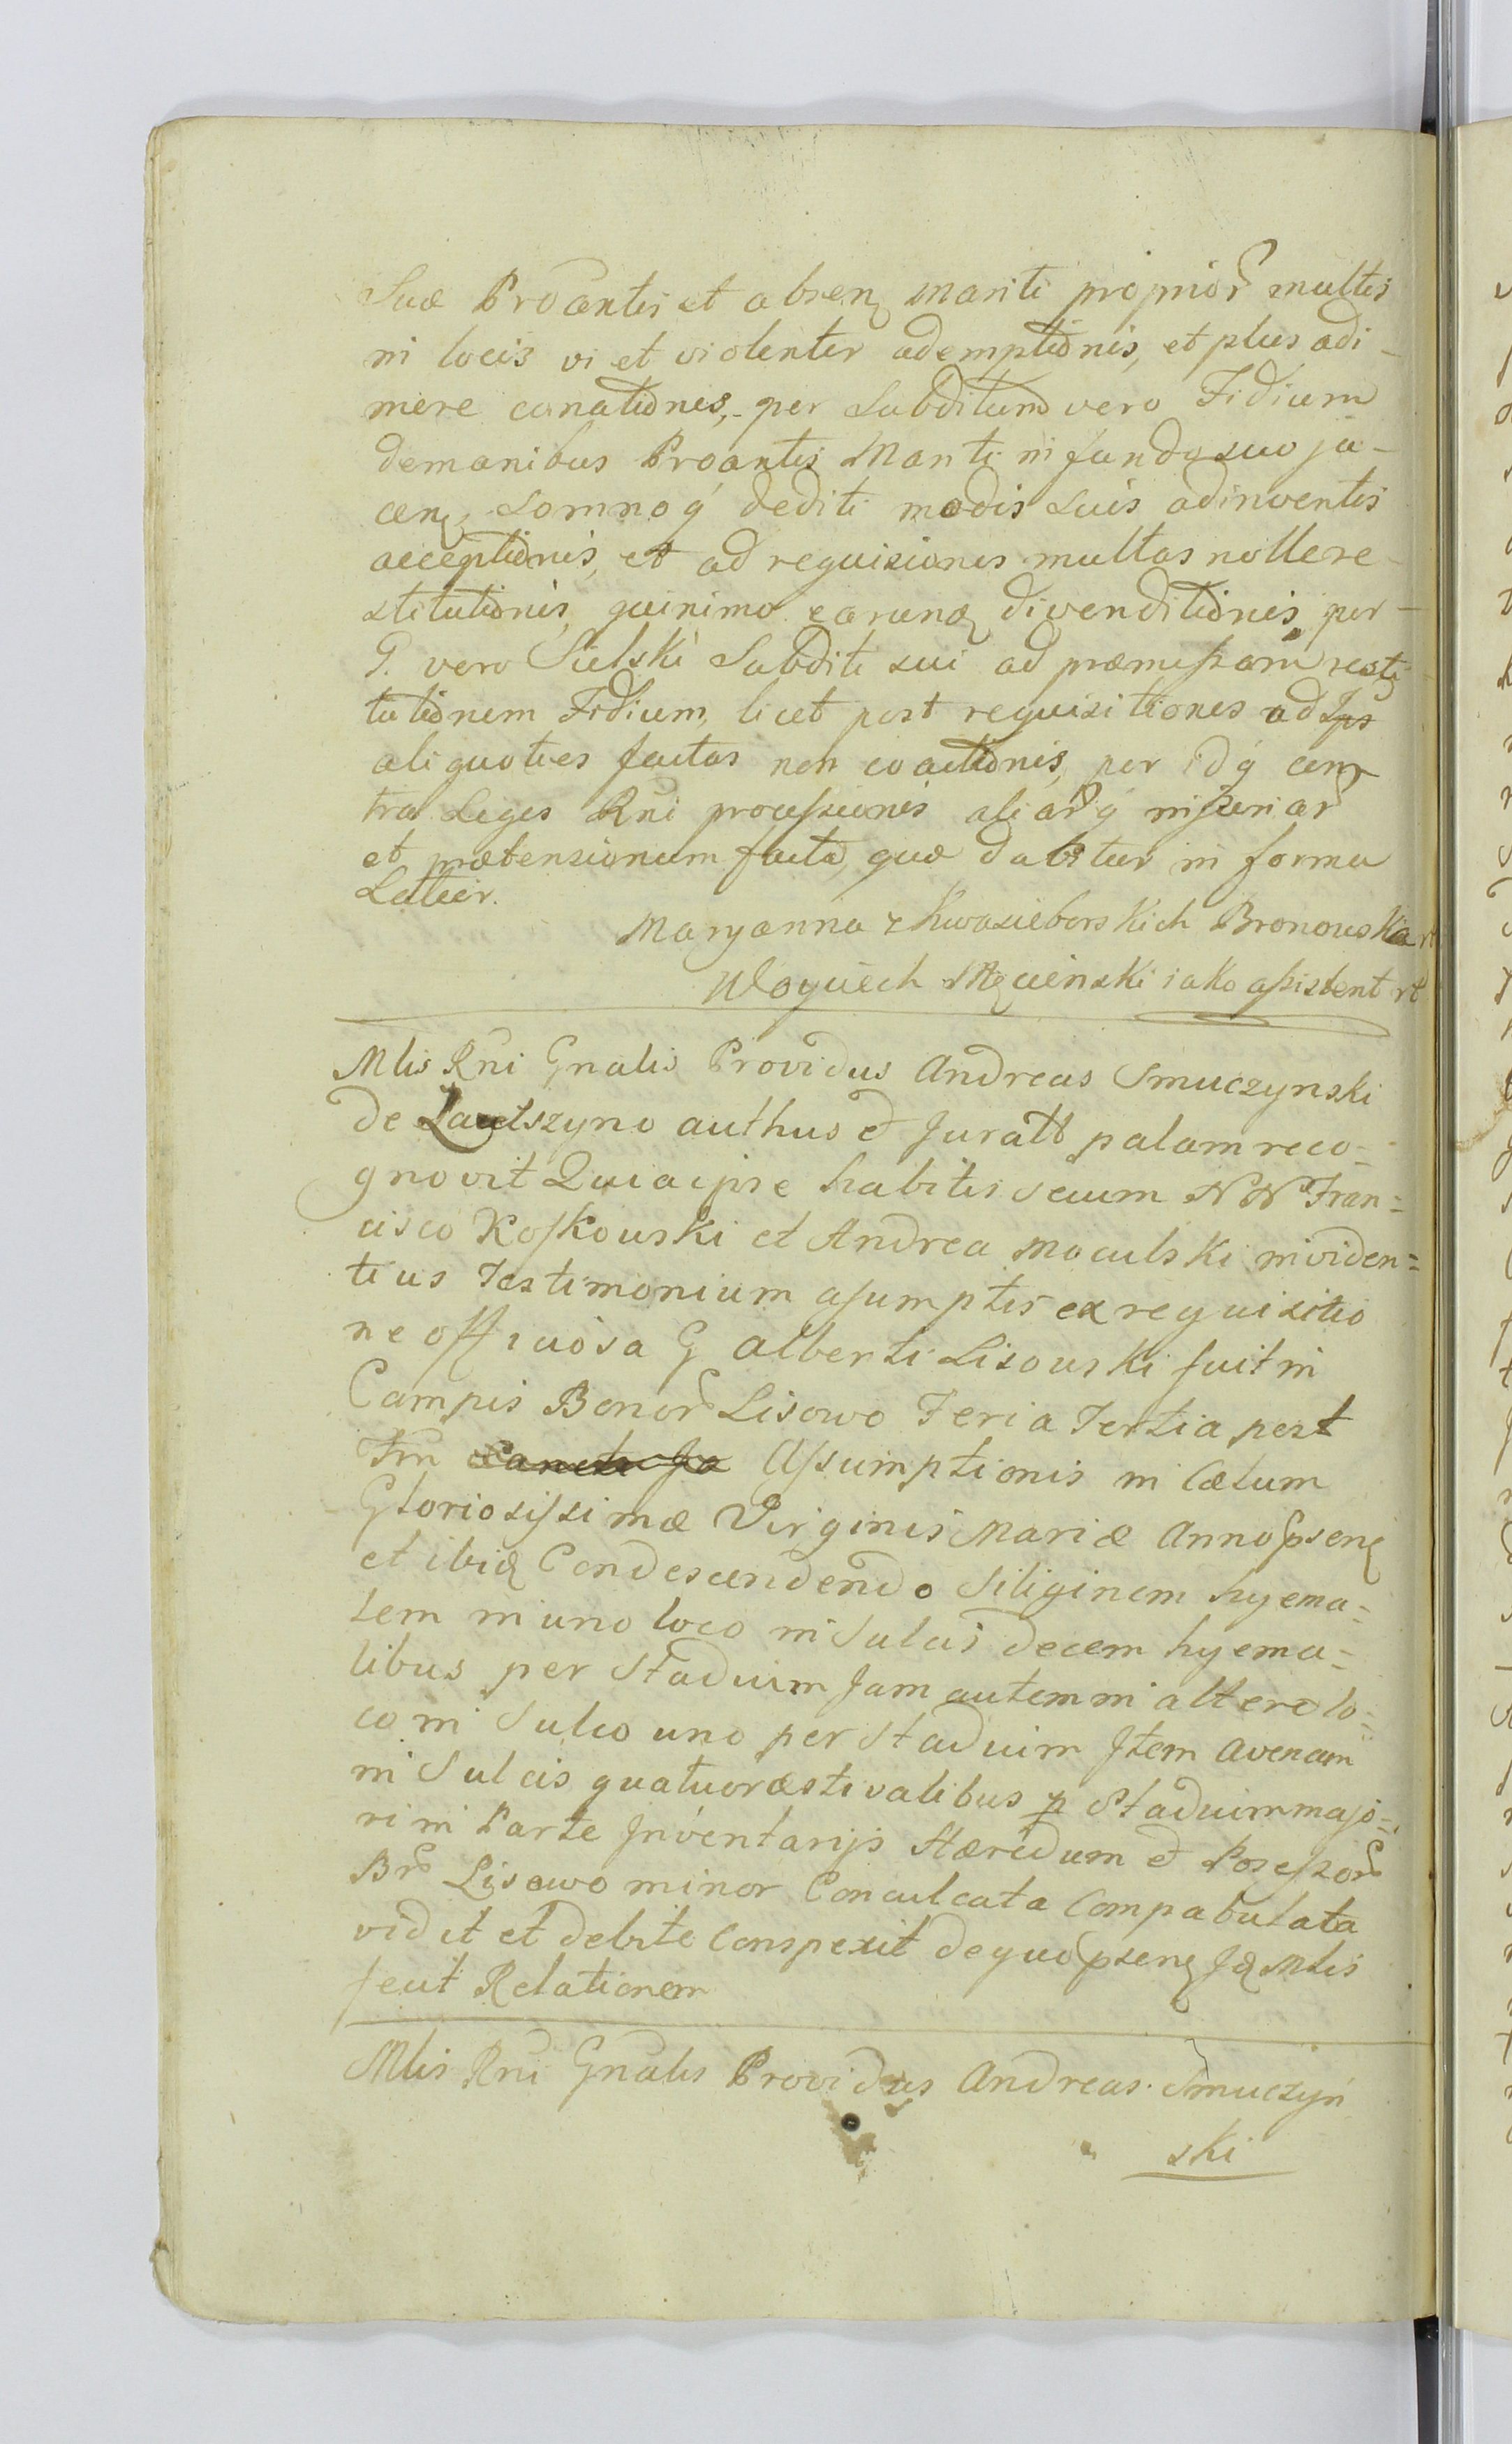 Suæ Proantis et absenq Mariti proprior multis
in locis vi et violenter ademptiõnis, et plus adi-
mere conatiõnes, per Subditum vero Fidium
de manibus Proantis Mariti in fundo suo ja-
cenq, Somnoq́ dediti modis suis adinventis
acceptiõnis, et ad requisiones multas nolle re-
stitutiõnis, quinimo earunq divenditiõnis, per-
G. vero Sielski Subditi sui ad præmissam resti
tutiõnem Fidium, licet post requisitiones ad Ips
aliquoties factas non coactiõnis, per idq́ con
tra Leges Rni processionis aliarq́ injuriar
et prætensionum facta, quæ dabitur in forma
Latior.
Maryanna z Kwasieborskich Bronowska rt
Woyciech Męcienski iako assistent rt
Mlis Rni Gnalis Providus Andreas Smuczynski
de authus & Juratt palam reco=
gnovit Quia ipse habitis secum NN Fran=
cisco Koskowski et Andrea Moculski in viden=
tius Testimonium asumptis ex requisitio
ne officiosa G Alberti Lisowski fuit in
Campis Bonor Lisowo Feria Tertia post
Ftm Assumptionis in Cælum
Gloriosissimæ Virginis Mariæ Anno psenq
et ibiq Condescendendo Siliginem hyema=
lem in uno loco in Sulcis decem hyema=
libus per Stadium Jam autem in altero lo=
co in Sulco uno per Stadium Jtem Avenam
in Sulcis quatuor æstivalibus p Stadium majo=
ri in Parte Jnventarijs Hæredum & Posessor
Br Lisowo minor Conculcata Compabulata
vidit et debite Conspexit de quo psenq Jq Mlis
fecit Relationem
Mlis Rni Gnalis Providus Andreas Smuczyń
ski